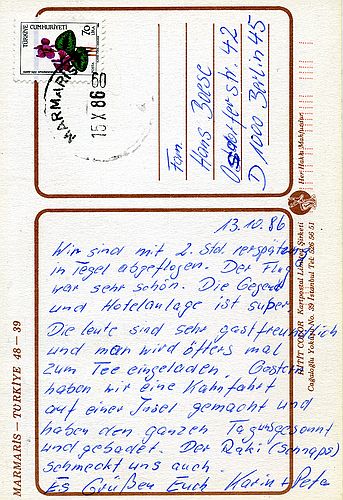 TÜRKİYE CUMHURİYETİ
70
LİRA
MARMARİS
15 X 86
Fam
Hans Baese
str. 42
D 1000 Berlin 45
Her Hakkı Mahfuzdur
13.10.86
Wir sind mit 2. Std. verspätung
in Tegel abgeflogen. Der Flug
war sehr schön. Die Gegend
und Hotelanlage ist super.
Die leute sind sehr gastfreundlich
und man wird öfters mal
zum Tee eingeladen. Gestern
haben wir eine Kahnfahrt
auf einer Insel gemacht und
haben den ganzen Tag gesonnt
und gebadet. Der Raki (Schnaps)
schmeckt uns auch.
Es Grüßen Euch Karin + Peta
MARMARİS – TÜRKİYE 48 – 39
COLOR Kartpostal Ltd. Şirketi
Cağaloğlu Yokuşu No. 39 İstanbul Tel: 526 56 51